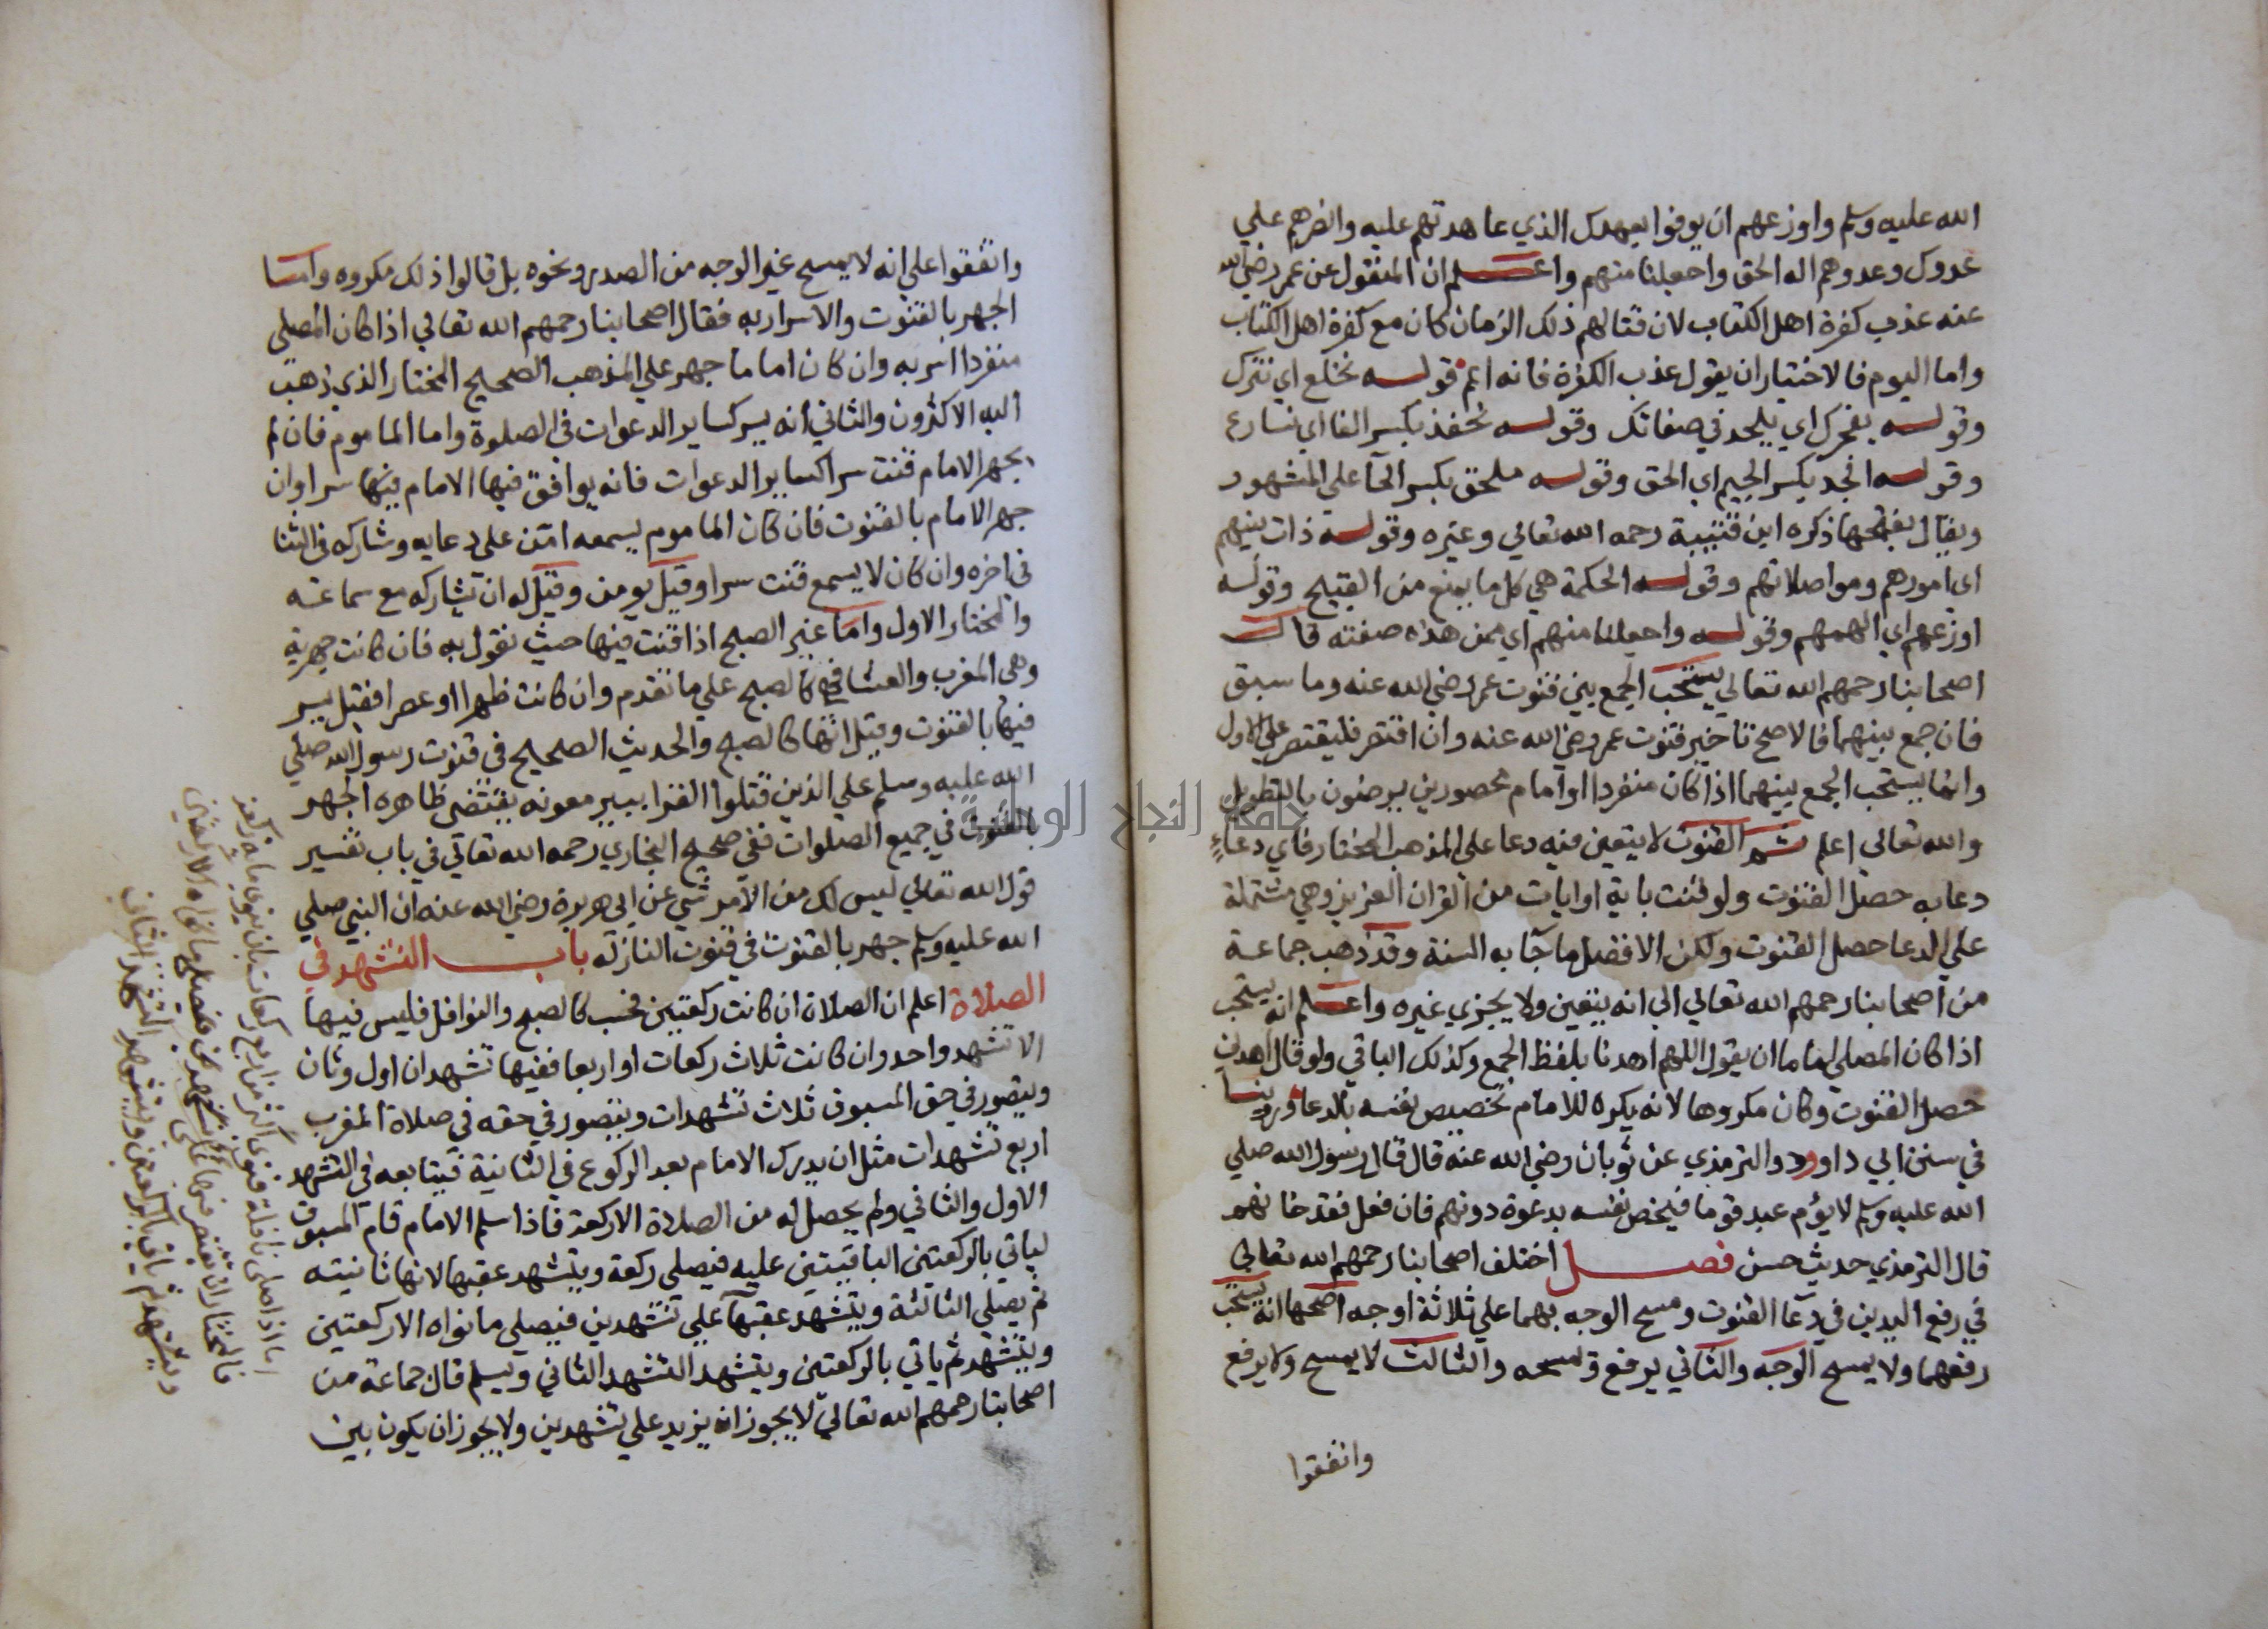 الله عليه وسلم واوزعهم ان يوفوا بعهدك الذي عاهدتهم عليه وانصرهم علي
عدوك وعدوهم اله الحق واجعلنا منهم واعلم ان المنقول عن عمر رضي الله
عنه عذب كفرة اهل الكتاب لان قتالهم ذلك الزمان كان مع كفرة اهل الكتاب
واما اليوم فالاختيار ان يقول عذب الكفرة فانه اعم قوله نخلع اي نترك
وقوله يفجرك اي يلحد في صفاتك وقوله نحفد بكسر الفا اي نسارع
وقوله الجد بكسر الجيم اي الحق وقوله ملحق بكسر الحآ علي المشهور
ويقال بفتحها ذكره ابن قتيبة رحمه الله تعالي وغيره وقوله ذات بينهم
اي امورهم ومواصلاتهم وقوله الحكمة هي كل ما يمنع من القبيح وقوله
اوزعهم اي الهمهم وقوله واجعلنا منهم اي ممن هذه صفته قال
اصحابنا رحمهم الله تعالي يستحب الجمع بين قنوت عمر رضي الله عنه وما سبق
فان جمع بينهما فالاصح تاخير قنوت عمر رضي الله عنه وان اقتصر فليقتصر علي الاول
وانما يستحب الجمع بينهما اذا كان منفردا او امام محصورين يرضون بالتطويل
والله تعالي اعلم ثم القنوت لا يتعين فيه دعا علي المذهب المختار فاي دعاء
دعا به حصل القنوت ولو قنت باية او ايات من القران العزيز وهي مشتملة
علي الدعا حصل القنوت ولكن الافضل ما جآ به السنة وقد ذهب جماعة
من اصحابنا رحمهم الله تعالي الي انه يتعين ولا يجزي غيره واعلم انه يستحب
اذا كان المصلي اماما ان يقول اللهم اهدنا بلفظ الجمع وكذلك الباقي ولو قال اهدني
حصل القنوت وكان مكروها لانه يكره للامام تخصيص نفسه بالدعا وروينا
في سنن ابي داوود والترمذي عن ثوبان رضي الله عنه قال قال رسول الله صلي
الله عليه وسلم لا يؤم عبد قوما فيخص نفسه بدعوة دونهم فان فعل فقد خانهم
قال الترمذي حديث حسن فصل اختلف اصحابنا رحمهم الله تعالي
في رفع اليدين في دعآ القنوت ومسح الوجه بهما علي ثلاثة اوجه اصحها انه يستحب
رفعهما ولا يمسح الوجه والثاني يرفع ويمسحه والثالث لا يمسح ولا يرفع
واتفقوا
واتفقوا علي انه لا يمسح غير الوجه من الصدر ونحوه بل قالوا ذلك مكروه واما
الجهر بالقنوت والاسرار به فقال اصحابنا رحمهم الله تعالي اذا كان المصلي
منفردا اسر به وان كان اماما جهر علي المذهب الصحيح المختار الذي ذهب
اليه الاكثرون والثاني انه يسر كساير الدعوات في الصلوة واما الماموم فان لم
يجهر الامام قنت سرا كساير الدعوات فانه يوافق فيها الامام فيها سرا وان
جهر الامام بالقنوت فان كان الماموم يسمعه امن علي دعايه وشاركه في الثنا
في اخره وان كان لا يسمع قنت سرا وقيل يومن وقيل له ان تشاركه مع سماعه
والمختار الاول واما غير الصبح اذا قنت فيها حيث نقول به فان كانت جهرية
وهي المغرب والعشا فهي كالصبح علي ما تقدم وان كانت ظهرا او عصرا فقيل يسر
فيها بالقنوت وقيل انها كالصبح والحديث الصحيح في قنوت رسول الله صلي
الله عليه وسلم علي الذين قتلوا القرا ببير معونه يقتضي ظاهره الجهر
بالقنوت في جميع الصلوات ففي صحيح البخاري رحمه الله تعالي في باب تفسير
قول الله تعالي ليس لك من الامر شي عن ابي هريرة رضي الله عنه ان النبي صلي
الله عليه وسلم جهر بالقنوت في قنوت النازله باب التشهد في
الصلاة اعلم ان الصلاة ان كانت ركعتين فحسب كالصبح والنوافل فليس فيها
الا تشهد واحد وان كانت ثلاث ركعات او اربعا ففيها تشهدان اول وثان
ويتصور في حق المسبوق ثلاث تشهدات ويتصور في حقه في صلاة المغرب
اربع تشهدات مثل ان يدرك الامام بعد الركوع في الثانية فيتابعه في التشهد
الاول والثاني ولم يحصل له من الصلاة الا ركعة فاذا سلم الامام قام المسبوق
لياتي بالركعتين الباقيتين عليه فيصلي ركعة ويتشهد عقبها لانها ثانيته
ثم يصلي الثالثة ويتشهد عقبها علي تشهدين فيصلي ما نواه الا ركعتين
ويتشهد ثم ياتي بالركعتين ويتشهد التشهد الثاني ويسلم قال جماعة من
اصحابنا رحمهم الله تعالي لا يجوز ان يزيد علي تشهدين ولا يجوز ان يكون بين
اما اذا صلي نافلة فنوي اكثر من اربع ركعات بان نوي ماية ركعة
فالمختار ان يقتصر فيها علي تشهدين فيصلي ما نواه الا ركعتين
ويتشهد ثم ياتي بالركعتين ويتشهد التشهد الثاني
جامعة النجاح الوطنية